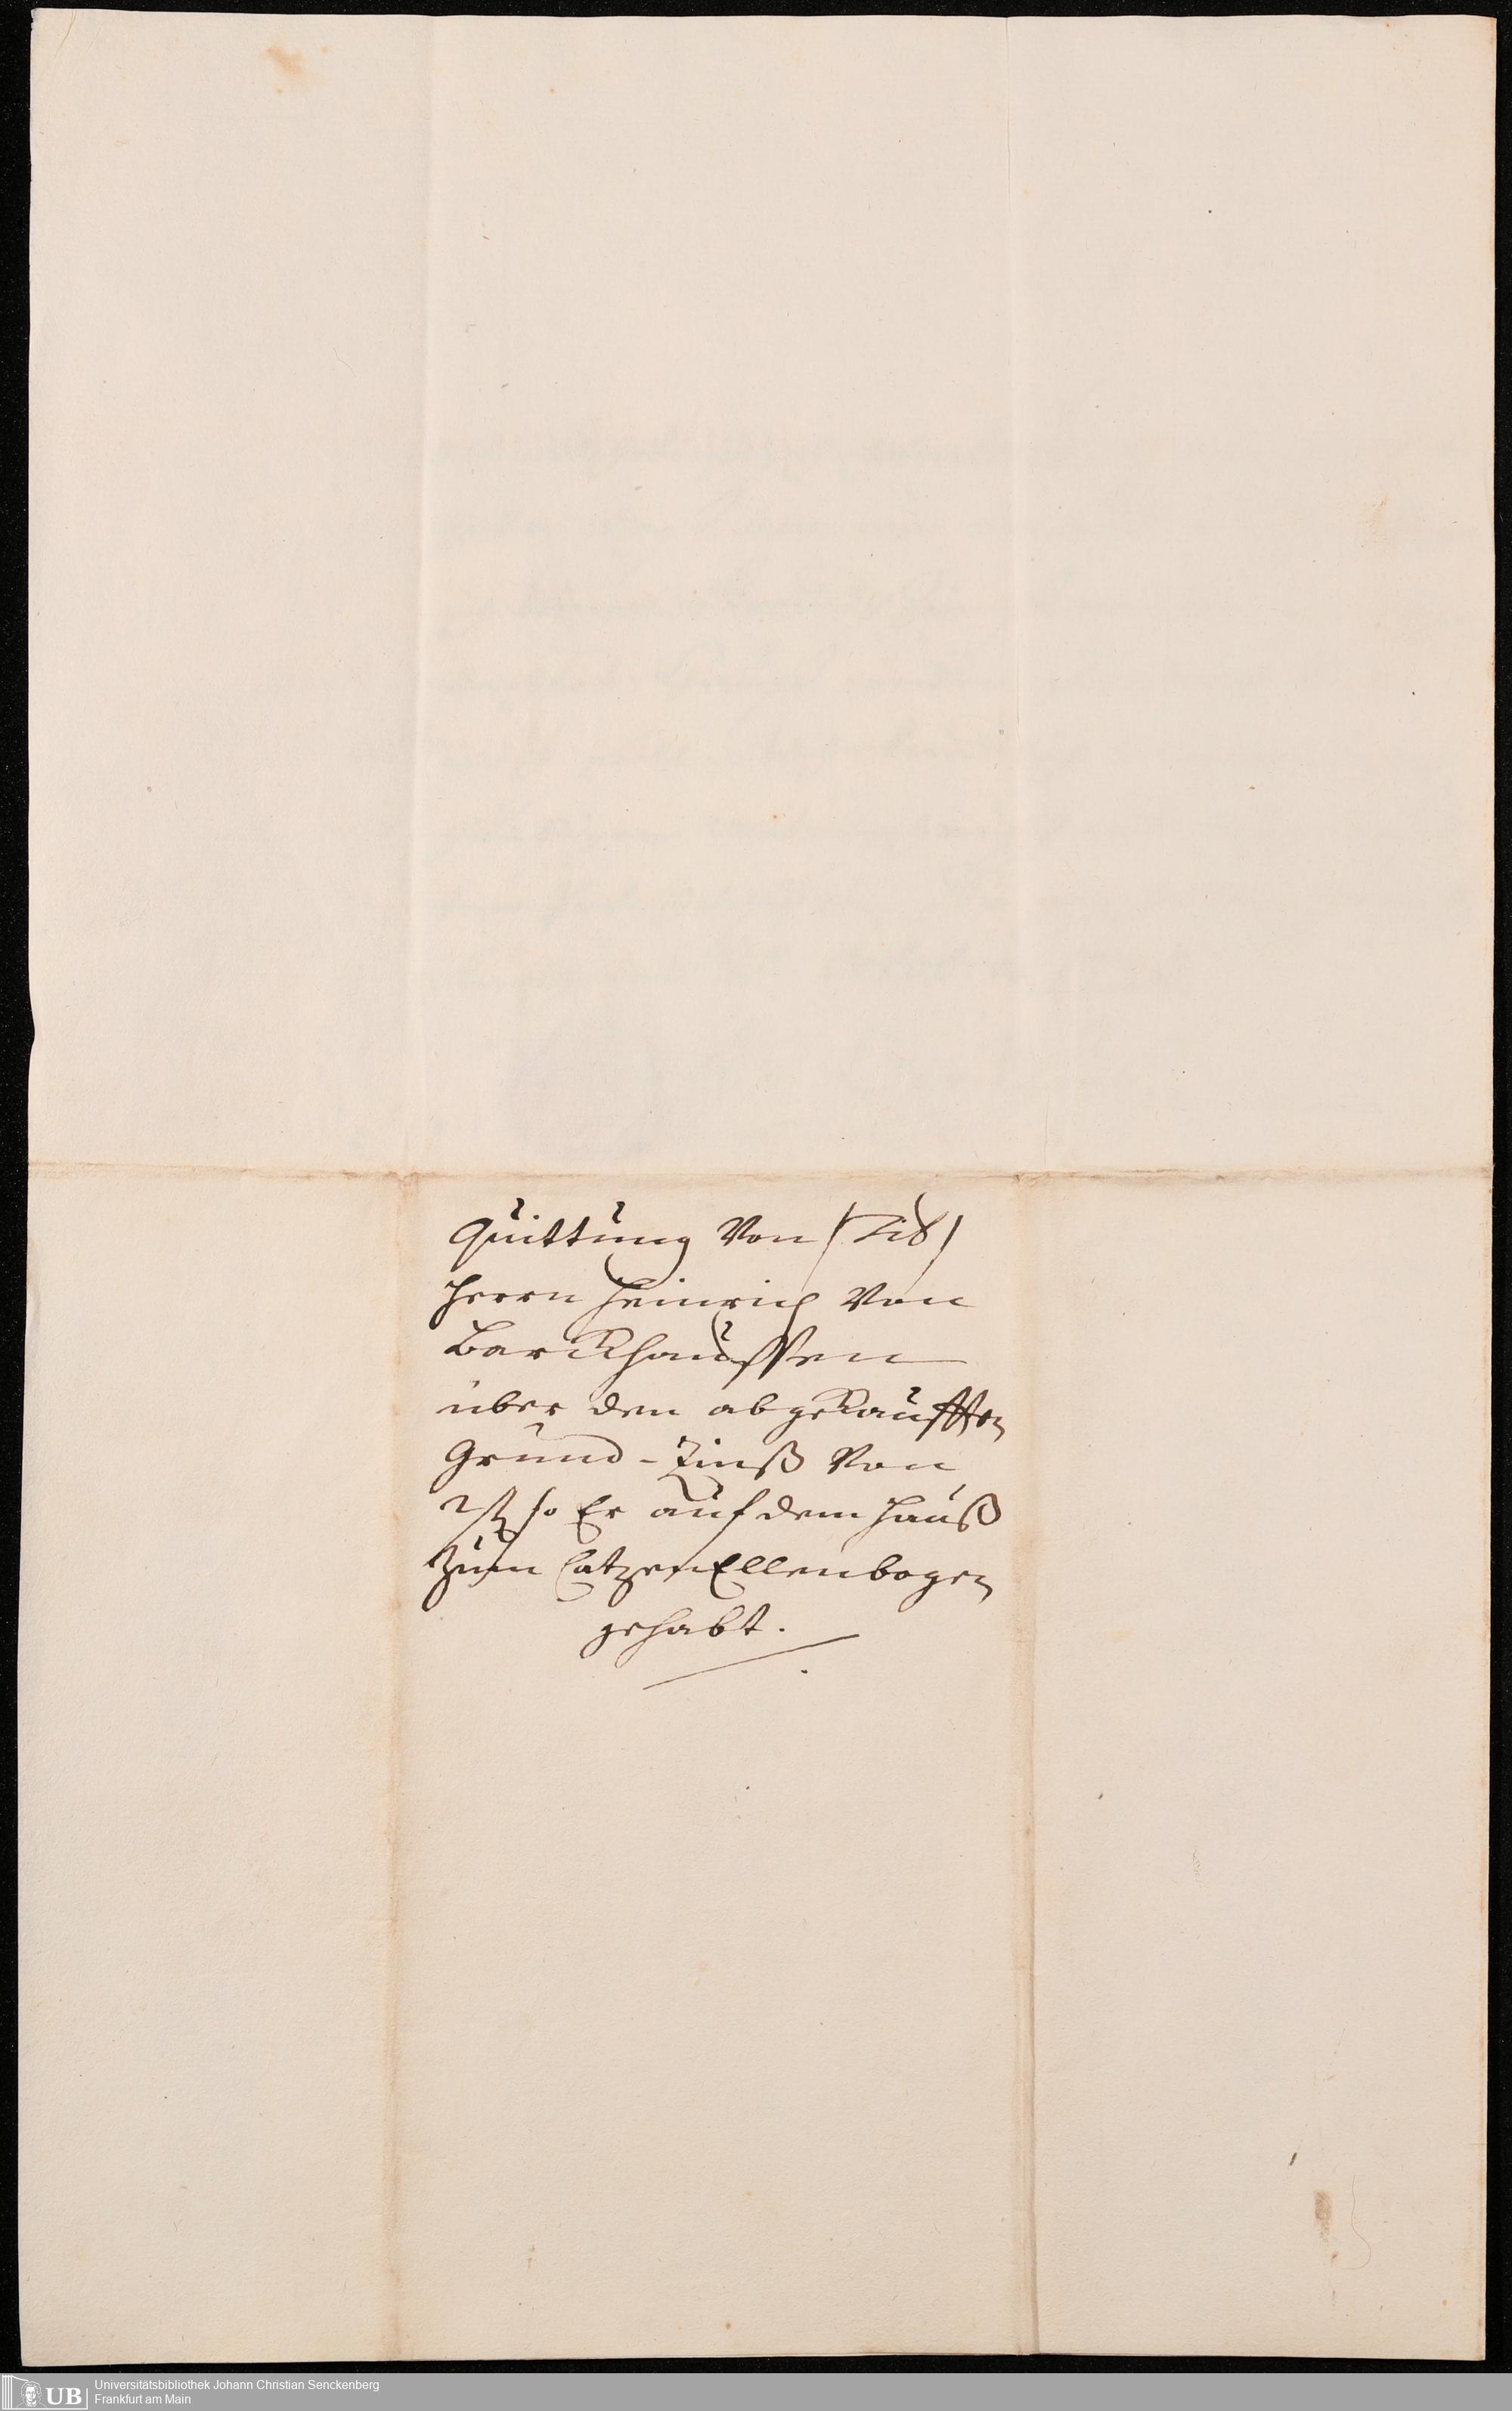 Quittung Von (Tit)
Herrn Heinrich Von
Barckhaussen
über den abgekaufften
Grund-Zinß Von
so Er auf dem Hauß
zum CatzenEllenbogen
gehabt.
UB
Universitätsbibliothek Johann Christian Senckenberg
Frankfurt am Main